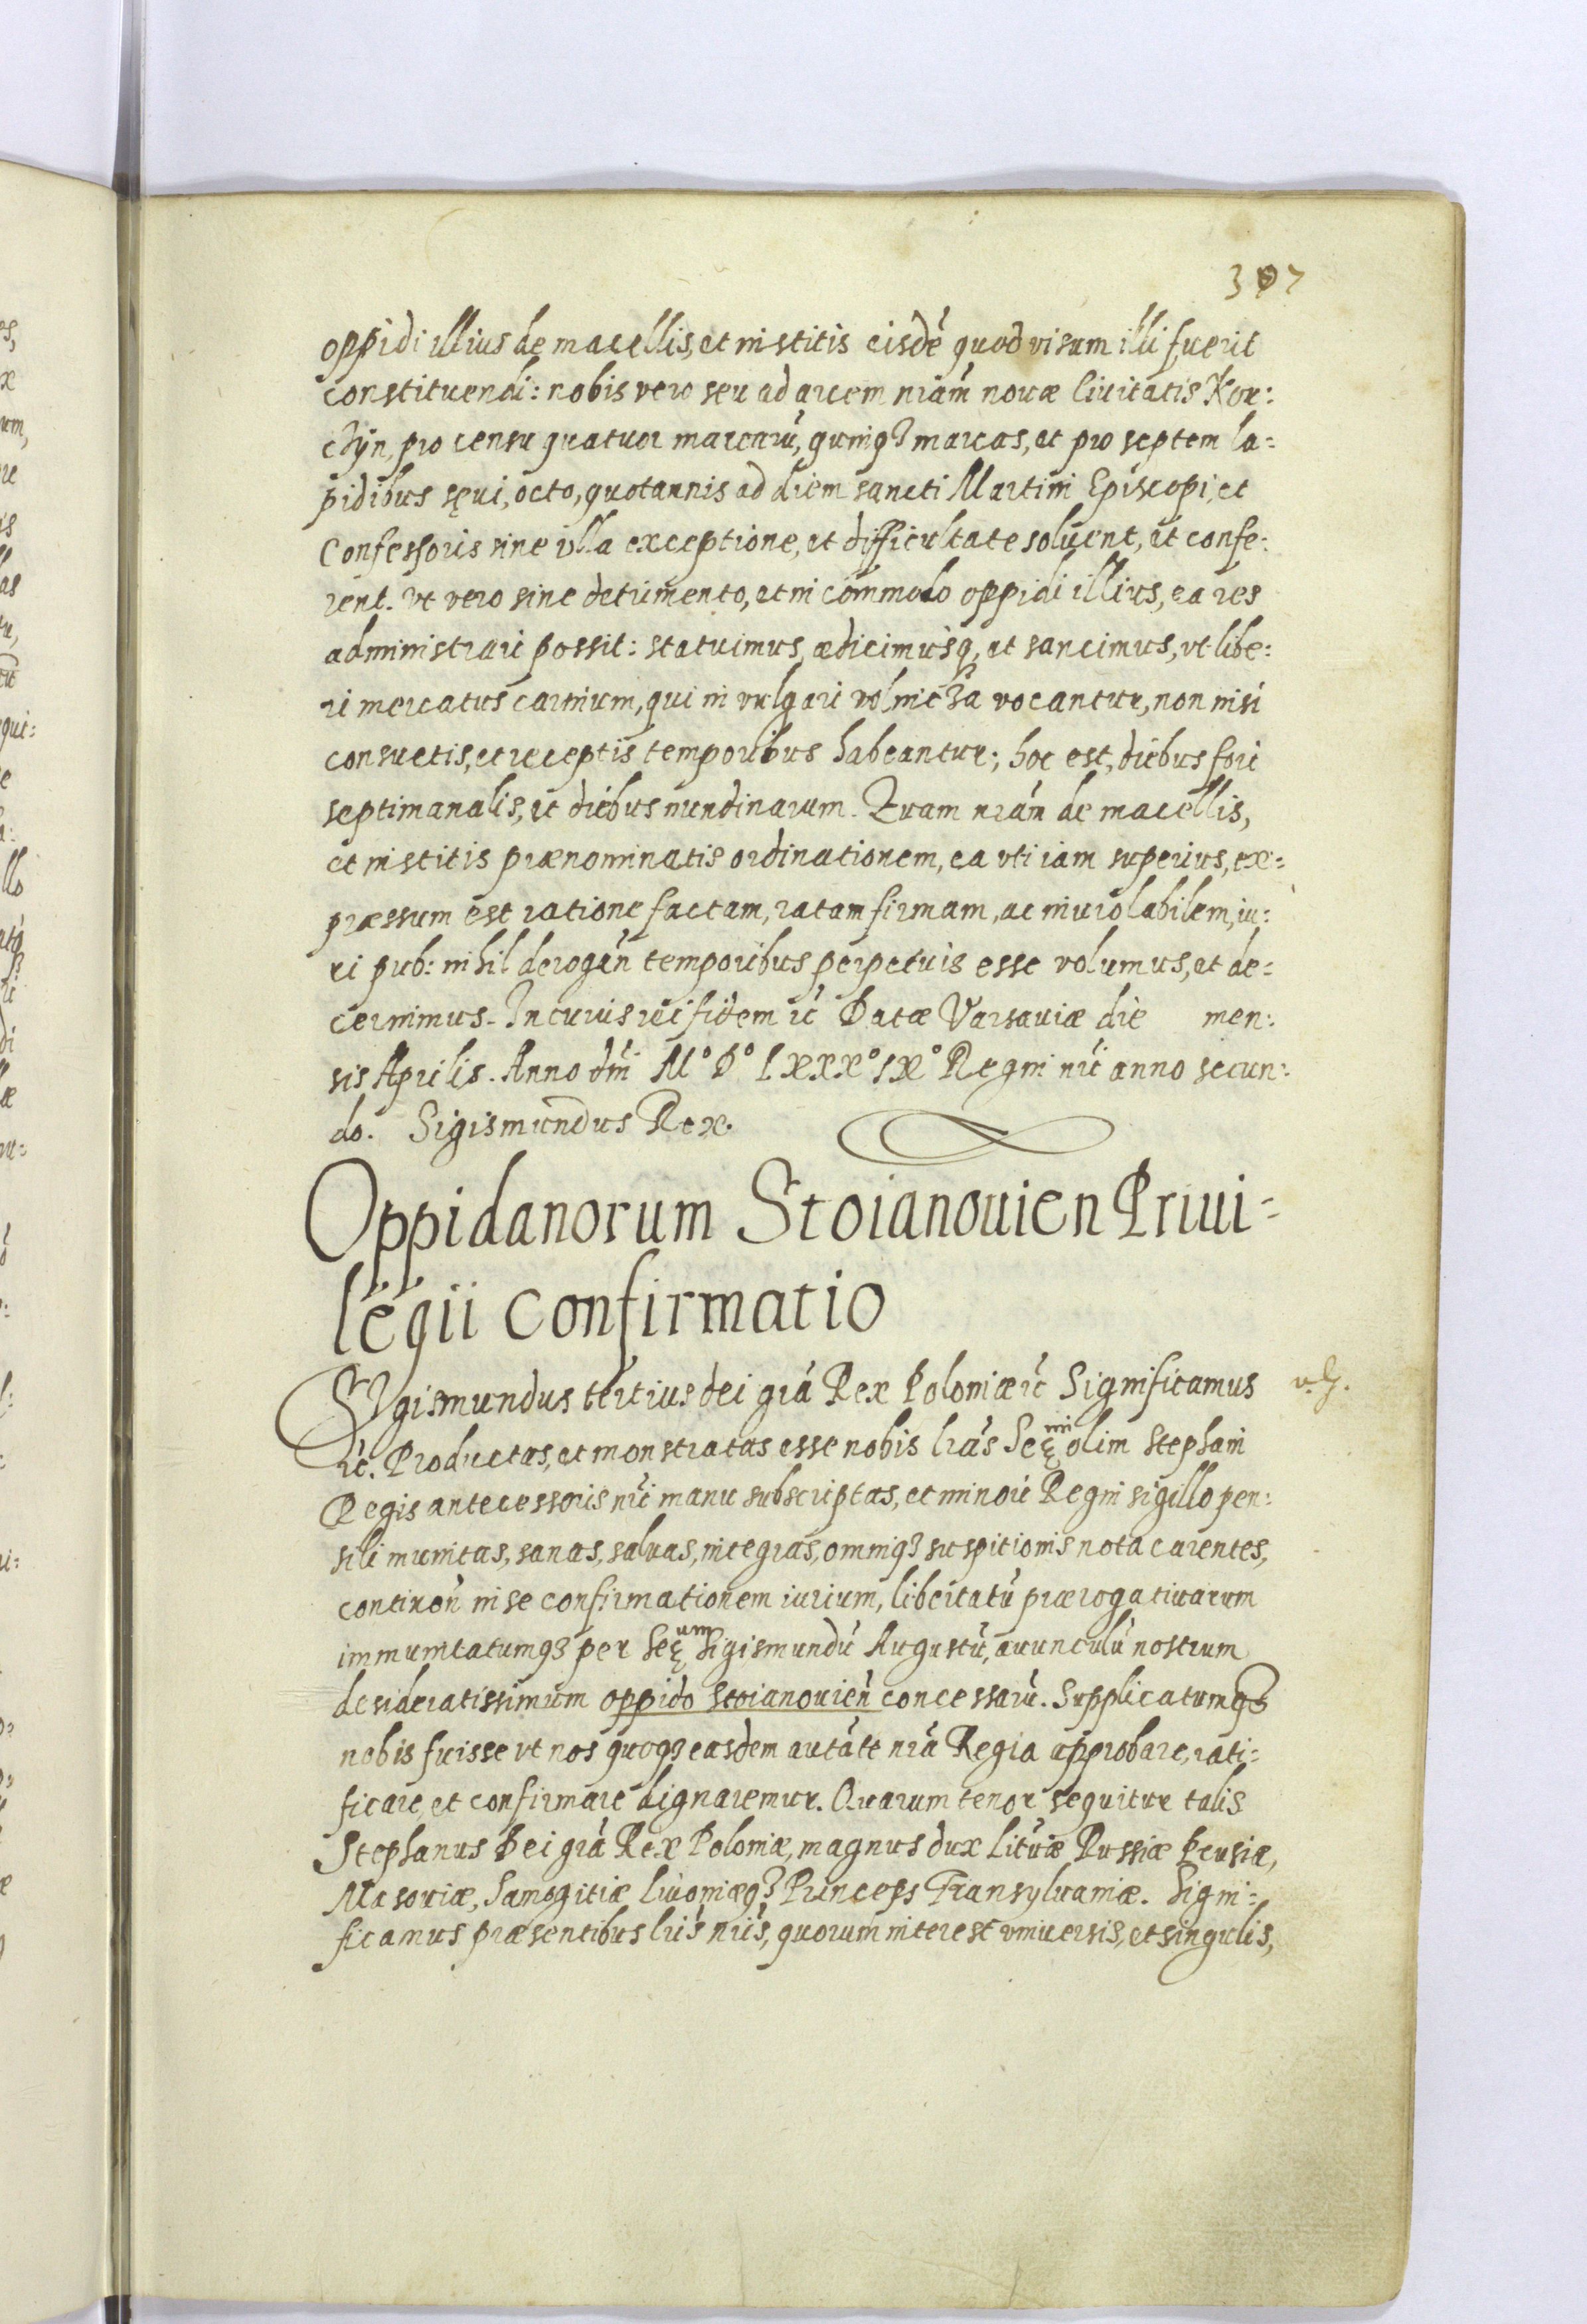 307
oppidi illius de macellis, et institis eisdē quod visum illi fuerit
constituendi: nobis vero seu ad arcem nrām nouæ Ciuitatis Kor:
chÿn, pro censu quatuor marcarū, quinq3 marcas, et pro septem la:
pidibus sęui, octo, quotannis ad diem sancti Martini Episcopi, et
Confessoris sine vlla exceptione, et difficultate soluent, et confe:
rent. Vt vero sine detrimento, et in commodo oppidi illius, ea res
administrari possit: statuimus, ædicimusq, et sancimus, vt libe:
ri mercatus carnium, qui in vulgari volnicza vocantur, non nisi
consuetis, et receptis temporibus habeantur; hoc est, diebus fori
septimanalis, et diebus nundinarum. Quam nrām de macellis,
et institis prænominatis ordinationem, ea vti iam superius, ex:
præssum est ratione factam, ratam firmam, ac inuiolabilem, iu:
ri pub: nihil derogān temporibus perpetuis esse volumus, et de:
cernimus. In cuius rei fidem ēt Datæ Varsauiæ die men:
sis Aprilis. Anno dnī M° D° LXXX° IX° Regni nrī anno secun:
do. Sigismundus Rex.
Oppidanorum Stoianouien Priui=
legii confirmatio
Sygismundus tertius dei grā Rex Poloniæ ēt Significamus
v. g.
ēt. Productas, et monstratas esse nobis lrās Seę ni olim Stephani
Regis antecessoris nrī manu subscriptas, et minori Regni sigillo pen:
sili munitas, sanas, saluas, integras, omniq3 suspitionis nota carentes,
continēn in se confirmationem iurium, libertatū prærogatiuarum
immunitatumq3 per Seę um Sigismundū Augustū, auunculū nostrum
desideratissimum oppido Stoianouiēn concessarū. Supplicatumq3
nobis fuisse vt nos quoq3 easdem autāte nrā Regia approbare, rati:
ficare, et confirmare dignaremur. Quarum tenor sequitur talis
Stephanus Dei grā Rex Poloniæ, magnus dux Lituæ Russiæ Prusiæ,
Masouiæ, Samogitiæ Liuoniæq3 Princeps Transyluaniæ. Signi:
ficamus præsentibus lrīs nrīs, quorum interest vniuersis, et singulis,